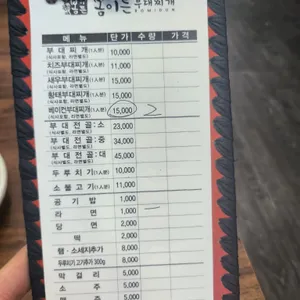 금이는 부대찌개
메 뉴 단 가 수 량 가 격
부 대 찌 개 (1인분) 10,000
(식사포함, 라면별도)
치즈부대찌개 (1인분) 11,000
(식사포함, 라면별도)
새우부대찌개 (1인분) 15,000
(식사포함, 라면별도)
황태부대찌개 (1인분) 15,000
(식사포함, 라면별도)
베이컨부대찌개 (1인분) 15,000
(식사포함, 라면별도)
부 대 전 골 : 소 23,000
(식사별도, 라면별도)
부 대 전 골 : 중 34,000
(식사별도, 라면별도)
부 대 전 골 : 대 45,000
(식사별도, 라면별도)
두 루 치 기 (1인분) 10,000
소 불 고 기 (1인분) 11,000
공 기 밥 1,000
라 면 1,000
당 면 2,000
떡 2,000
햄 · 소세지추가 8,000
두루치기 고기추가 300g 8,000
막 걸 리 5,000
소 주 5,000
맥 주 5,000